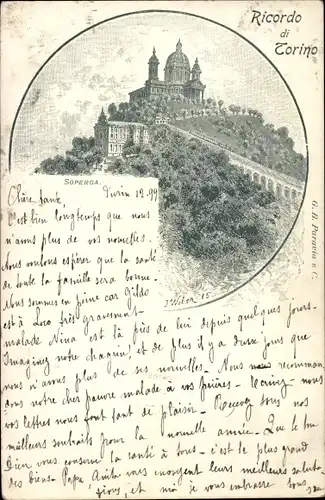 Ricordo
di
Torino
SOPERGA.
G. B. Paravia e C.
Turin 12-99
C'est bien longtemps que nous
n'avons plus de vos nouvelles.
Nous voulons espérer que la santé
de toute la famille sera bonne.
Nous sommes en peine car Gildo
est à très gravement
malade Nina est là près de lui depuis quelques jours.
Imaginez notre chagrin, et de plus il y a deux jours que
nous n'avons plus de ses nouvelles. Nous recommandons
dons notre cher pauvre malade à vos prières.
vos lettres nous font tant de plaisir. Recevez tous nos
meilleurs souhaits pour la nouvelle année. Que le bon
Dieu vous conserve la santé à tous. c'est le plus grand
des biens. Papa vous envoyent leurs meilleures saluta-
tions, et moi je vous embrasse tous